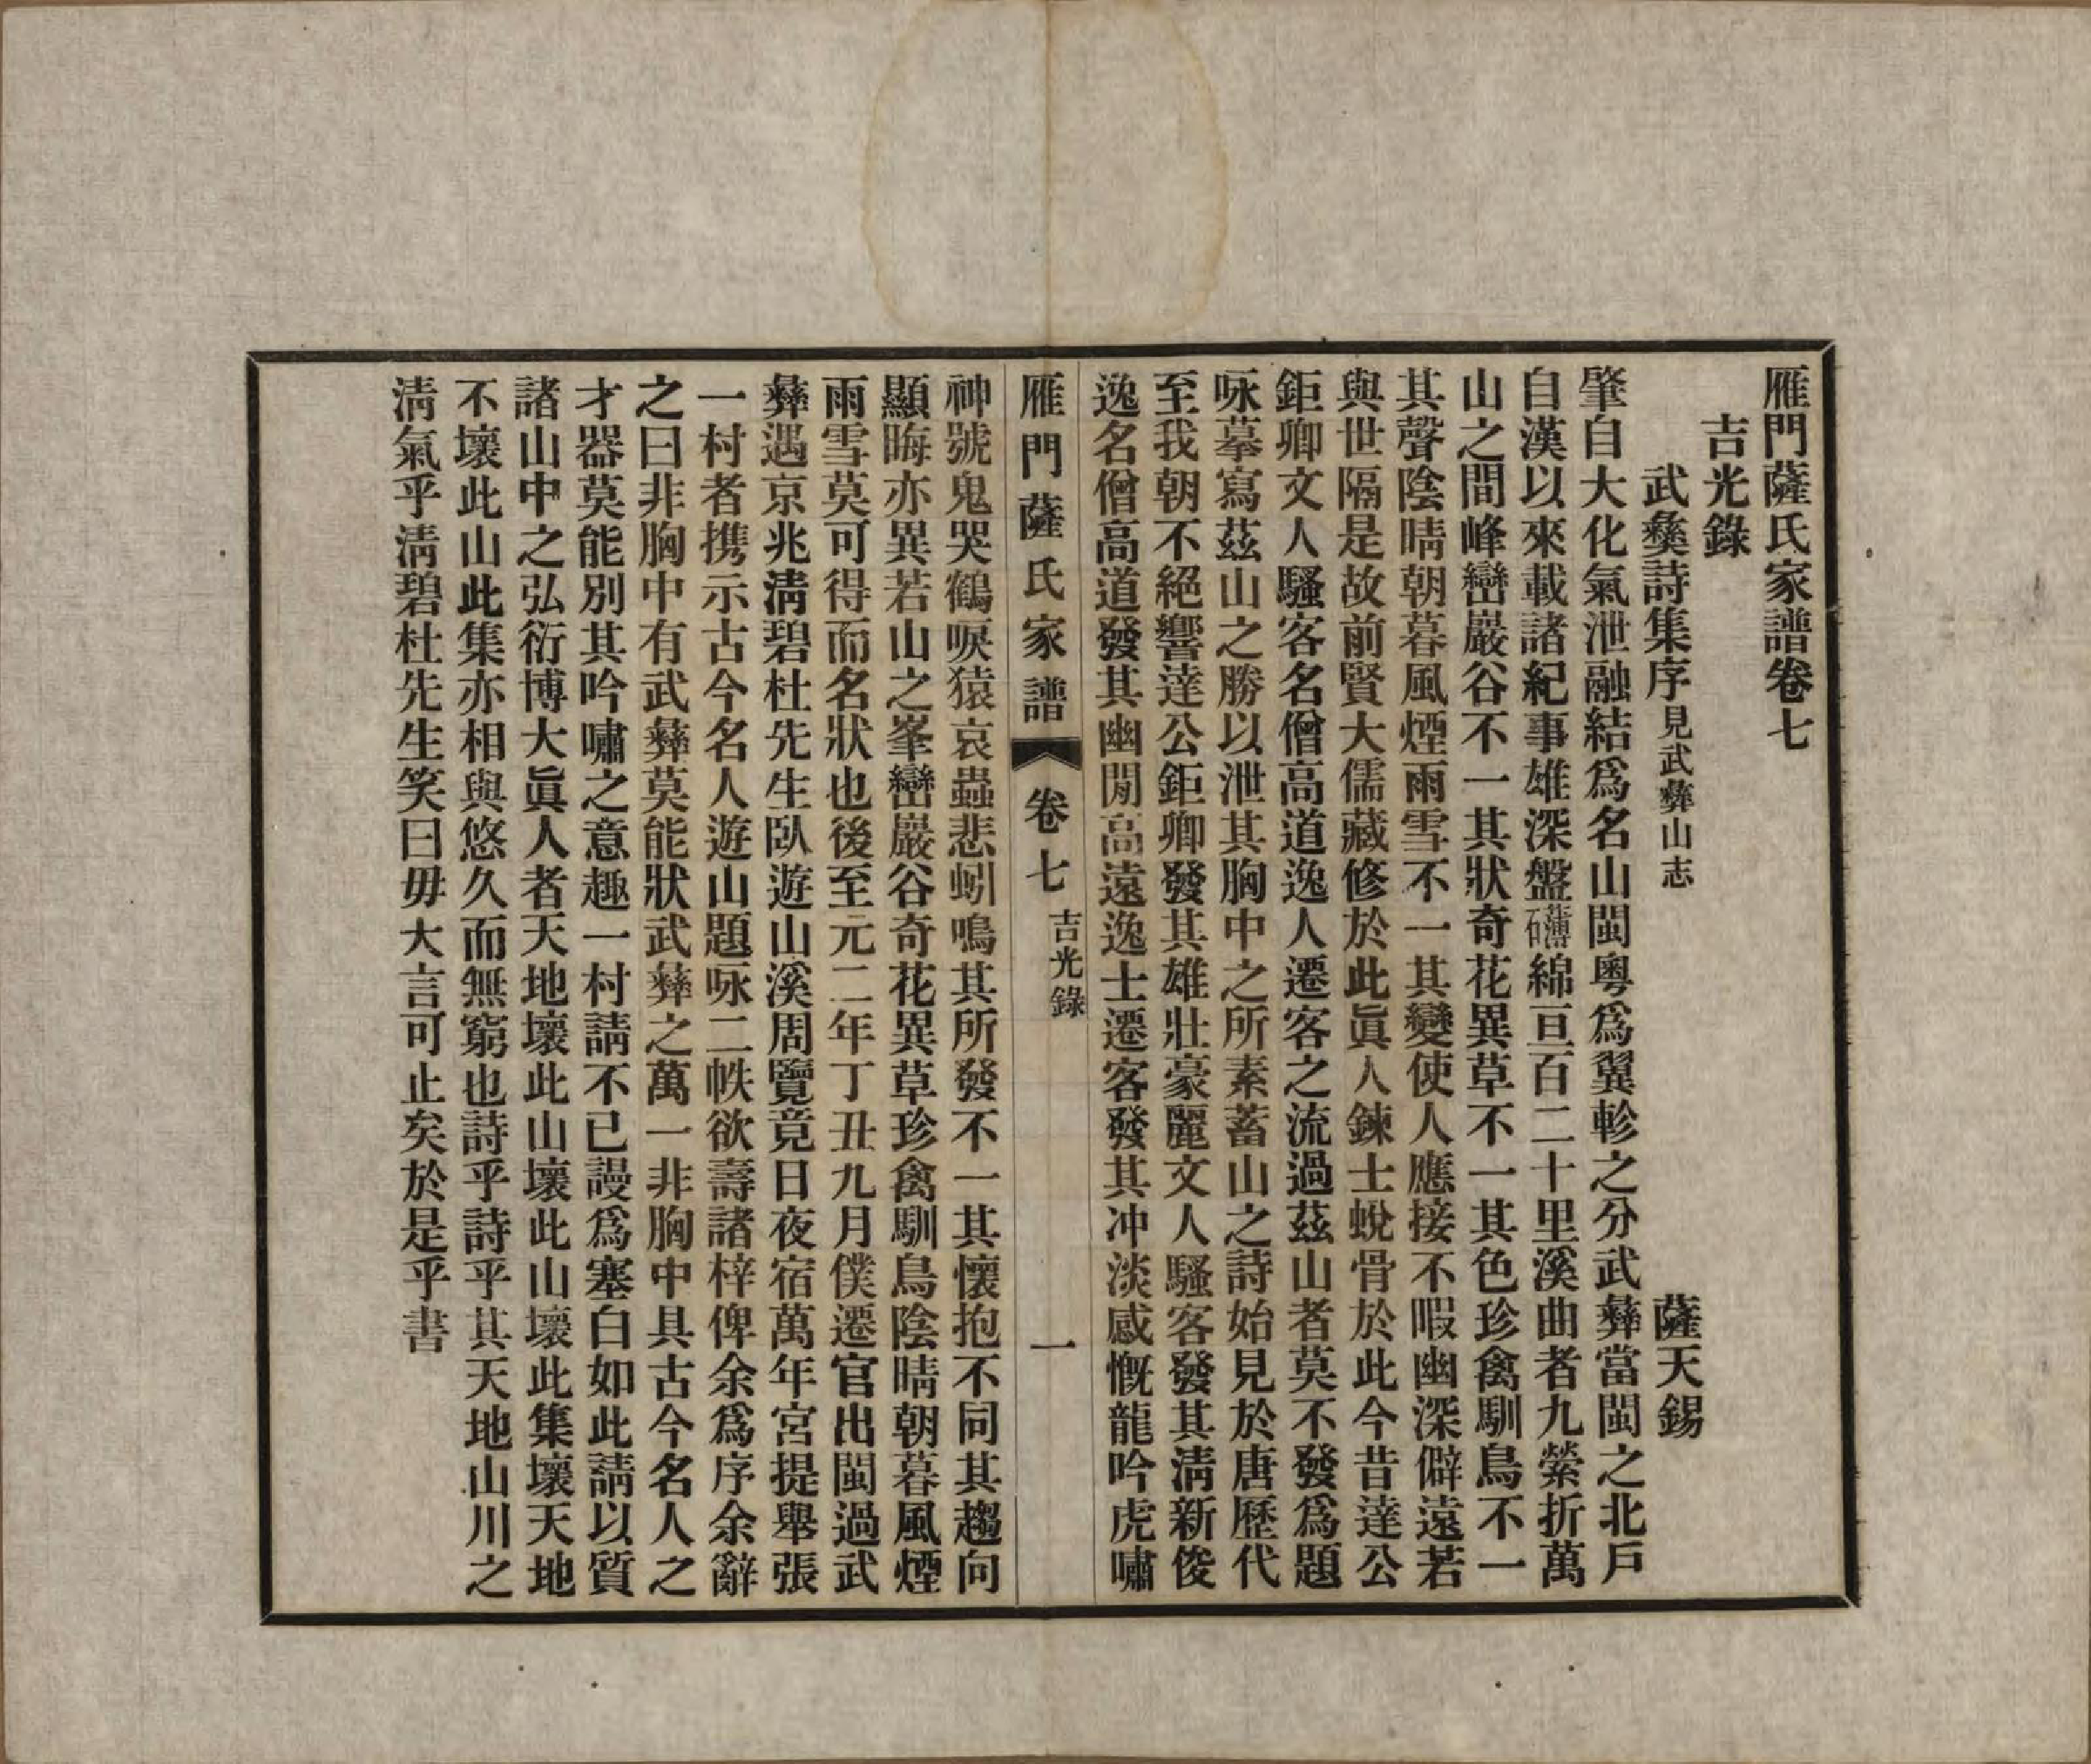 雁門薩氏家譜卷七
吉光錄
武彝詩集序見武彝山志　薩天錫
肇自大化氣泄融結爲名山閩粵爲翼軫之分武彝當閩之北戶
自漢以來載諸紀事雄深盤礴綿亘百二十里溪曲者九縈折萬
山之間峰巒巖谷不一其狀奇花異草不一其色珍禽馴鳥不一
其聲陰晴朝暮風煙雨雪不一其變使人應接不暇幽深僻遠若
與世隔是故前賢大儒藏修於此眞人鍊士蛻骨於此今昔達公
鉅卿文人騷客名僧高道逸人遷客之流過茲山者莫不發爲題
咏摹寫茲山之勝以泄其胸中之所素蓄山之詩始見於唐歷代
至我朝不絕響達公鉅卿發其雄壯豪麗文人騷客發其清新俊
逸名僧高道發其幽閒高遠逸士遷客發其冲淡感慨龍吟虎嘯
雁門薩氏家譜　卷七　吉光錄　一
神號鬼哭鶴唳猿哀蟲悲蚓鳴其所發不一其懷抱不同其趨向
顯晦亦異若山之峯巒巖谷奇花異草珍禽馴鳥陰晴朝暮風煙
雨雪莫可得而名狀也後至元二年丁丑九月僕遷官出閩過武
彝遇京兆清碧杜先生臥遊山溪周覽竟日夜宿萬年宮提舉張
一村者攜示古今名人遊山題咏二帙欲壽諸梓俾余爲序余辭
之曰非胸中有武彝莫能狀武彝之萬一非胸中具古今名人之
才器莫能別其吟嘯之意趣一村請不已謾爲塞白如此請以質
諸山中之弘衍博大眞人者天地壞此山壞此山壞此集壞天地
不壞此山此集亦相與悠久而無窮也詩乎詩乎其天地山川之
清氣乎清碧杜先生笑曰毋大言可止矣於是乎書